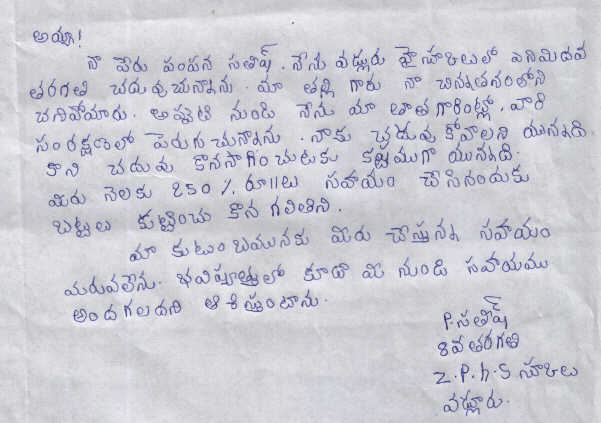 అయ్యా!
నా పేరు పంపన సతీష్. నేను వడ్లూరు హైస్కూలులో ఎనిమిదవ
తరగతి చదువుచున్నాను. మా తల్లి గారు నా చిన్నతనంలోనే
చనిపోయారు. అప్పటి నుండి నేను మా తాత గారింట్లో, వారి
సంరక్షణలో పెరుగుచున్నాను. నాకు చదువు కోవాలని యున్నది.
కాని చదువు కొనసాగించుటకు కష్టముగా యున్నది.
మీరు నెలకు 250 /. రూ॥లు సహాయం చేసినందుకు
బట్టలు కుట్టించు కొన గలితిని.
మా కుటుంబమునకు మీరు చేస్తున్న సహాయం
మరువలేను. భవిష్యత్తులో కూడా మీ నుండి సహాయము
అందగలదని ఆశిస్తుంటాను.
P. సతీష్
8వ తరగతి
Z.P.h.S స్కూలు
వడ్లూరు.